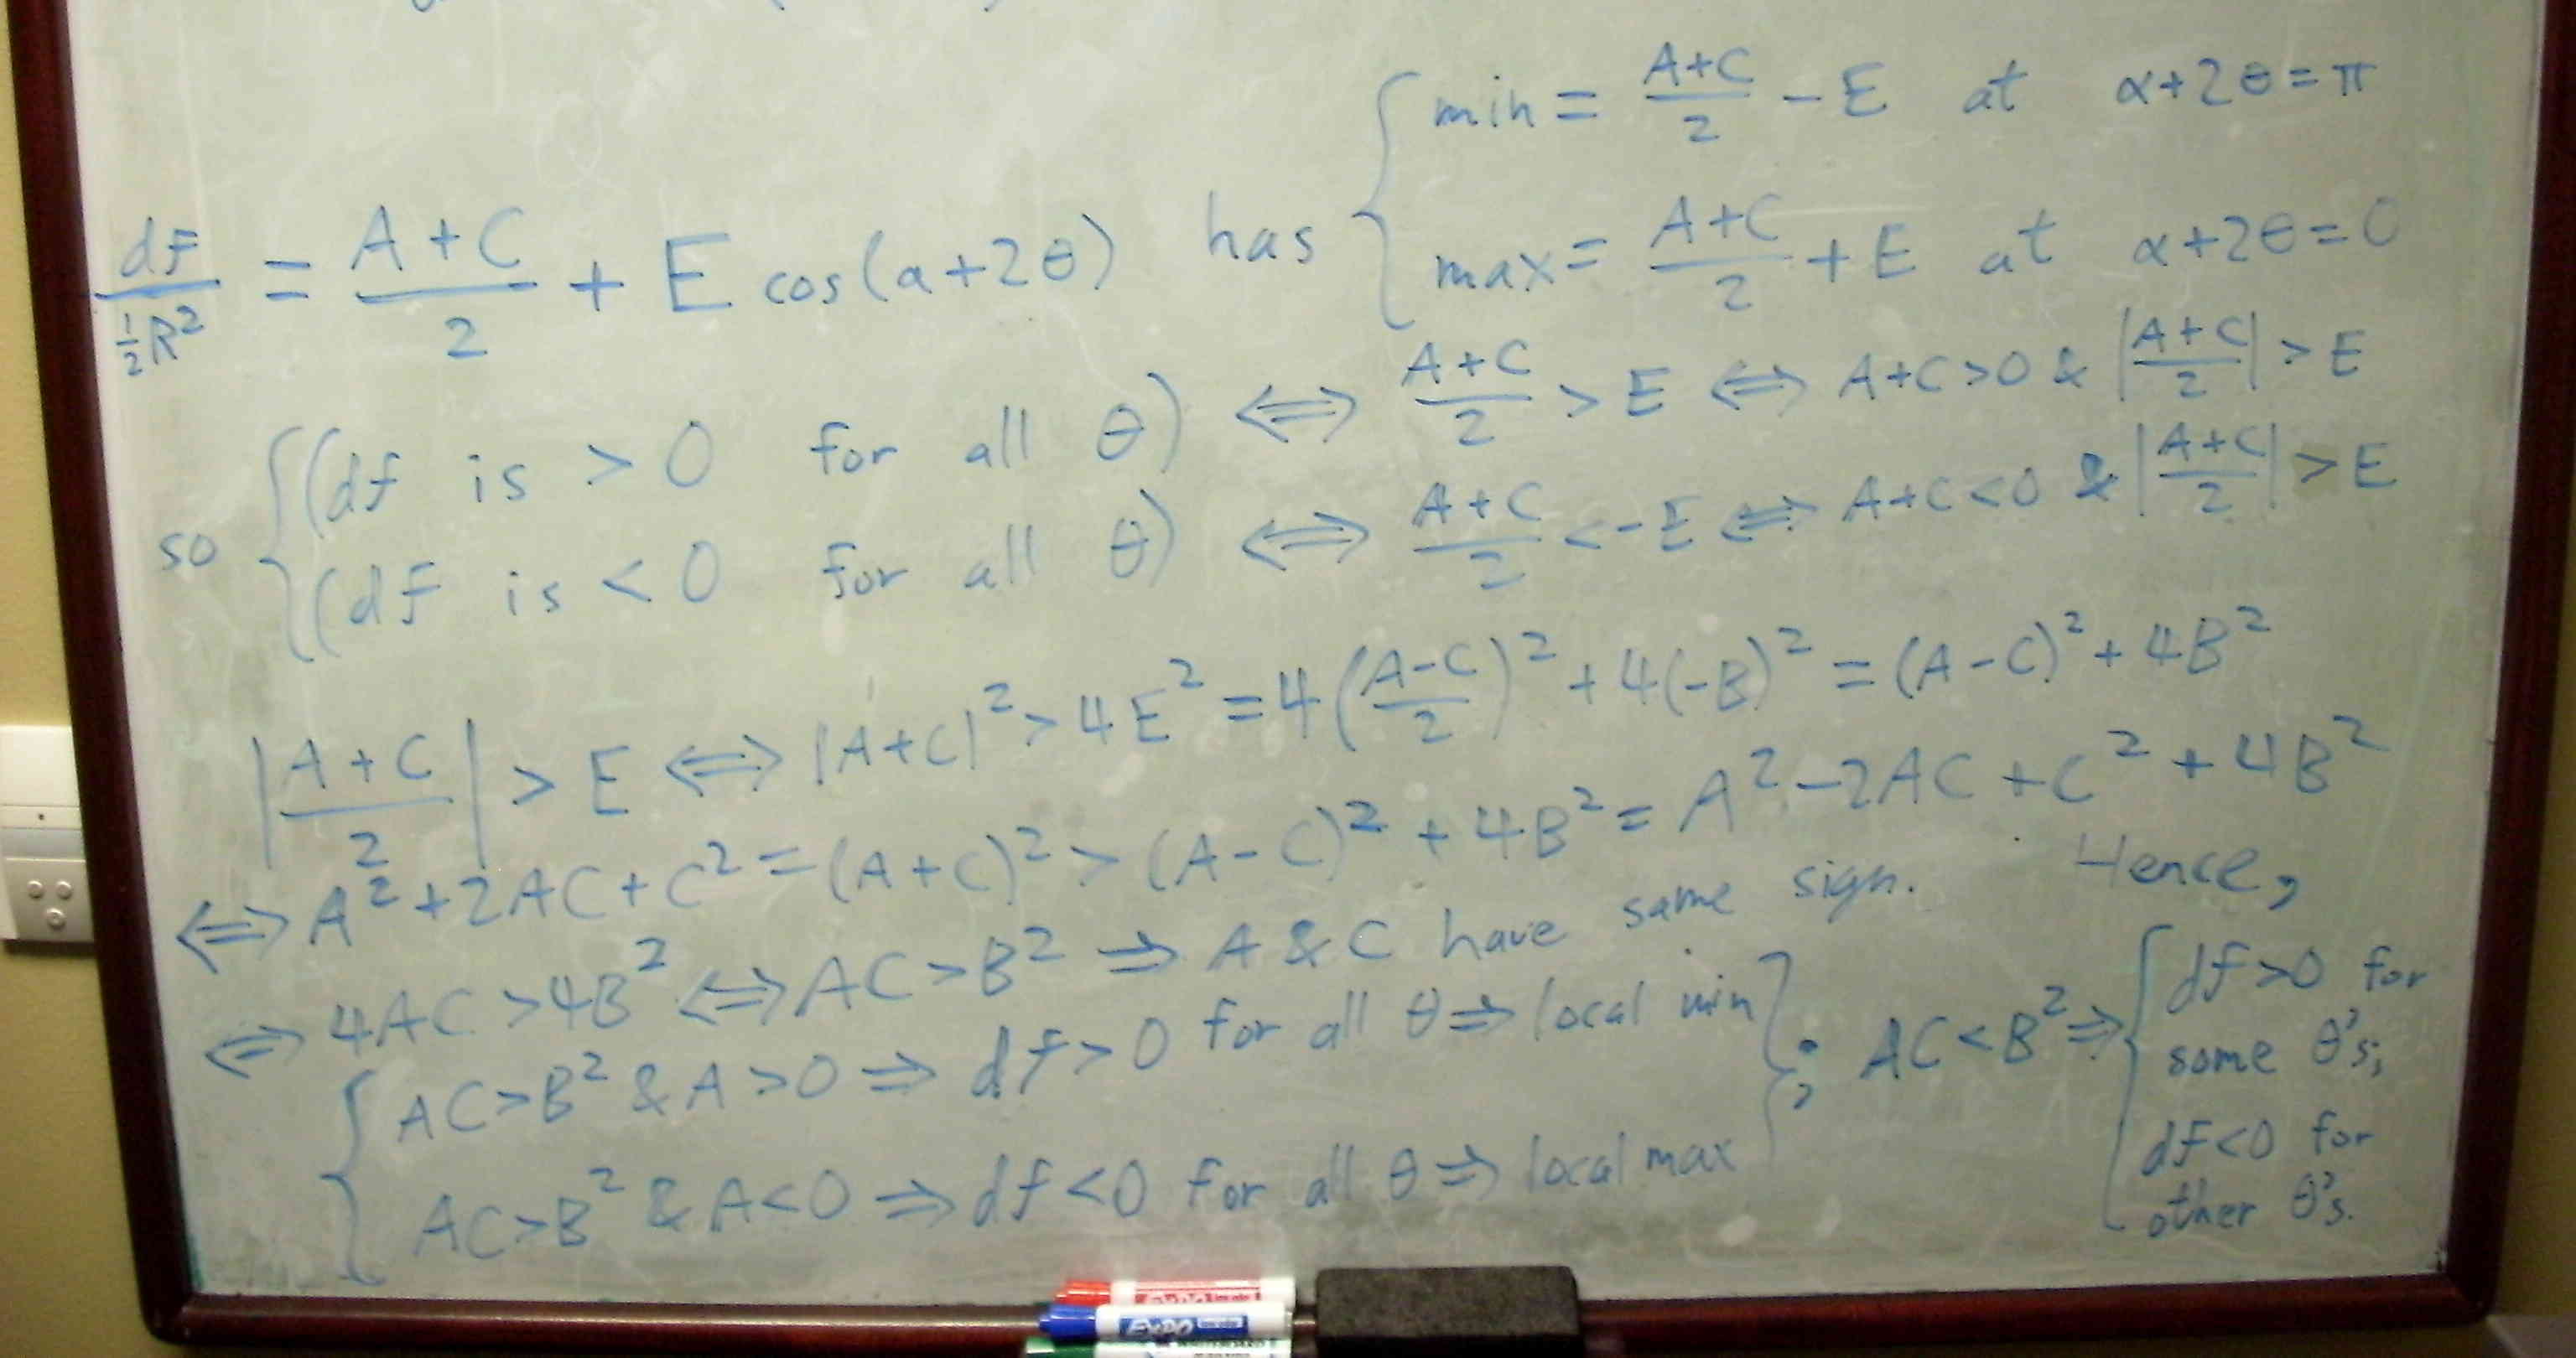 df/(½R²) = (A+C)/2 + E cos(a+2θ) has { min = (A+C)/2 − E at α+2θ=π
max = (A+C)/2 + E at α+2θ=0
so { (df is > 0 for all θ) ⇔ (A+C)/2 > E ⇔ A+C>0 & |(A+C)/2| > E
(df is < 0 for all θ) ⇔ (A+C)/2 < −E ⇔ A+C<0 & |(A+C)/2| > E
|(A+C)/2| > E ⇔ |A+C|² > 4E² = 4((A−C)/2)² + 4(−B)² = (A−C)² + 4B²
⇔ A²+2AC+C² = (A+C)² > (A−C)² + 4B² = A²−2AC+C²+4B²
⇔ 4AC > 4B² ⇔ AC > B² ⇒ A & C have same sign. Hence,
{ AC>B² & A>0 ⇒ df>0 for all θ ⇒ local min
AC>B² & A<0 ⇒ df<0 for all θ ⇒ local max }
; AC<B² ⇒ { df>0 for
some θ's;
df<0 for
other θ's.
EXPO
EXPO